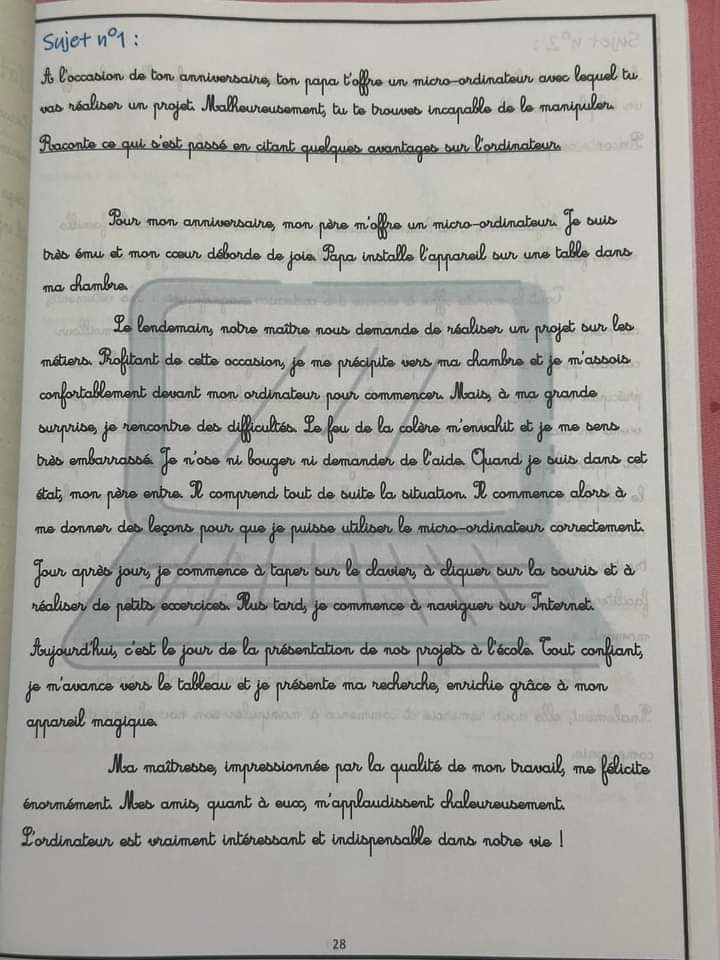 Sujet n°1 :
À l'occasion de ton anniversaire, ton papa t'offre un micro-ordinateur avec lequel tu
vas réaliser un projet. Malheureusement, tu te trouves incapable de le manipuler.
Raconte ce qui s'est passé en citant quelques avantages sur l'ordinateur.
Pour mon anniversaire, mon père m'offre un micro-ordinateur. Je suis
très ému et mon cœur déborde de joie. Papa installe l'appareil sur une table dans
ma chambre.
Le lendemain, notre maître nous demande de réaliser un projet sur les
métiers. Profitant de cette occasion, je me précipite vers ma chambre et je m'assois
confortablement devant mon ordinateur pour commencer. Mais, à ma grande
surprise, je rencontre des difficultés. Le feu de la colère m'envahit et je me sens
très embarrassé. Je n'ose ni bouger ni demander de l'aide. Quand je suis dans cet
état, mon père entre. Il comprend tout de suite la situation. Il commence alors à
me donner des leçons pour que je puisse utiliser le micro-ordinateur correctement.
Jour après jour, je commence à taper sur le clavier, à cliquer sur la souris et à
réaliser de petits exercices. Plus tard, je commence à naviguer sur Internet.
Aujourd'hui, c'est le jour de la présentation de nos projets à l'école. Tout confiant,
je m'avance vers le tableau et je présente ma recherche, enrichie grâce à mon
appareil magique.
Ma maîtresse, impressionnée par la qualité de mon travail, me félicite
énormément. Mes amis, quant à eux, m'applaudissent chaleureusement.
L'ordinateur est vraiment intéressant et indispensable dans notre vie !
28